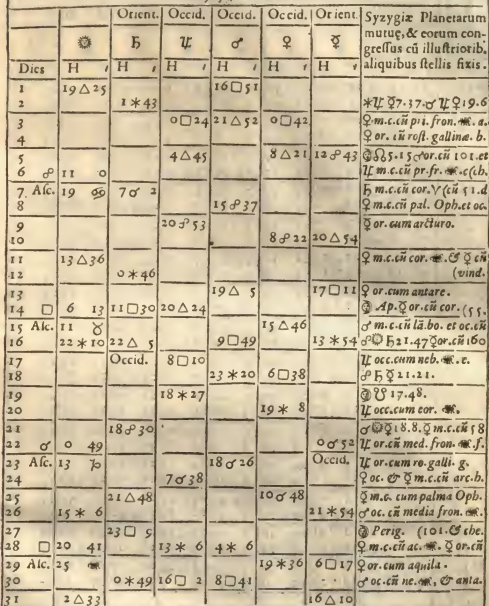 Orient. Occid. Occid. Occid. Orient. Syzygiæ Planetarum
mutuę, & eorum con-
☼ ♄ ♃ ♂ ♀ ☿ gressus cū illustriorib.
Dies H ′ H ′ H ′ H ′ H ′ H ′ aliquibus stellis fixis.
1 19 △ 25 16 □ 51
2 1 ✶ 43 ✶ ♃ ☿ 7.37. ☌ ♃ ♀ 19.6
3 0 □ 24 21 △ 52 0 □ 42 ♀ m.c.cū pri. fron. a.
4 ♀ or. cū rost. gallinæ. b.
5 4 △ 45 8 △ 21 12 ☍ 43 ☊ 5.15 ♂ or. cū 101. et
6 ☍ 11 0 ♃ m.c. cū pr. fr. c (ch.
7 Asc. 19 ♋ 7 ☌ 2 ♄ m.c. cū cor. ♈ (cū 51.d
8 15 ☍ 37 ♀ m.c. cū pal. Oph. et oc.
9 20 ☍ 53 ☿ or. cum arcturo.
10 8 ☍ 22 20 △ 54
11 13 △ 36 ♀ m.c. cū cor. & ☿ cū
12 0 ✶ 46 (vind.
13 19 △ 5 17 □ 11 ♀ or. cum antare.
14 □ 6 13 11 □ 30 20 △ 24 Ap. ☿ or. cū cor. (55.
15 Asc. 11 ♉ 15 △ 46 ♂ m.c. cū lā. bo. et oc. cū
16 22 ✶ 10 22 △ 5 9 □ 49 13 ✶ 54 ☍ ☼ ♄ 21.47 ☿ or. cū 160
17 Occid. 8 □ 10 ♃ occ. cum neb. e.
18 23 ✶ 20 6 □ 38 ☍ ♄ ☿ 21.21.
19 18 ✶ 27 ☋ 17.48.
20 19 ✶ 8 ♃ occ. cum cor.
21 18 ☍ 30 ☌ ☼ ☿ 18.8. ☿ m.c. cū 58
22 ☌ 0 49 0 ☌ 52 ♃ or. cū med. fron. f.
23 Asc. 13 ♑ 18 ☌ 26 Occid. ♃ or. cum ro. galli. g.
24 7 ☌ 38 ♀ oc. & ☿ m.c. cū arc. h.
25 21 △ 48 10 ☌ 48 ☿ m.c. cum palma Oph.
26 15 ✶ 6 21 ✶ 54 ♂ oc. cū media fron.
27 23 □ 9 Perig. (101. & che.
28 □ 20 41 13 ✶ 6 4 ✶ 6 ♀ m.c. cū ac. ☿ or. cū
29 Asc. 25 19 ✶ 36 6 □ 17 ♀ or. cum aquila.
30 0 ✶ 49 16 □ 2 8 □ 41 ♂ oc. cū ne. & anta.
31 2 △ 33 16 △ 10